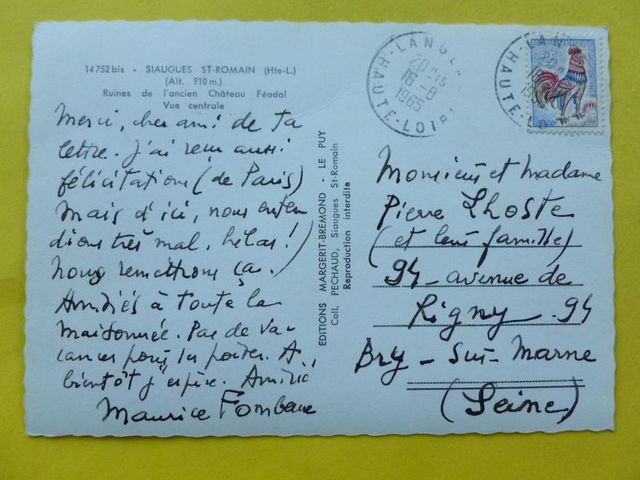 14752 bis - SIAUGUES ST-ROMAIN (Hte-L.)
(Alt. 910 m.)
Ruines de l'ancien Château Féodal
Vue centrale
Merci, cher ami de ta
lettre. J'ai reçu aussi
félicitations (de Paris)
Mais d'ici, nous enten
dions très mal, hélas!
Nous remettrons ça.
Amitiés à toute la
maisonnée. Pas de va-
cances pour les poètes. A
bientôt j'espère. Amitié
Maurice Fombeure
EDITIONS MARGERIT-BREMOND LE PUY
Coll. PECHAUD, Siaugues St-Romain
Reproduction interdite
LANGE
20H15
16-9
1965
HAUTE-LOIRE
0,25
Monsieur et Madame
Pierre Lhoste
(et leur famille)
94 - avenue de
Rigny. 94
Bry-Sur-Marne
(Seine)